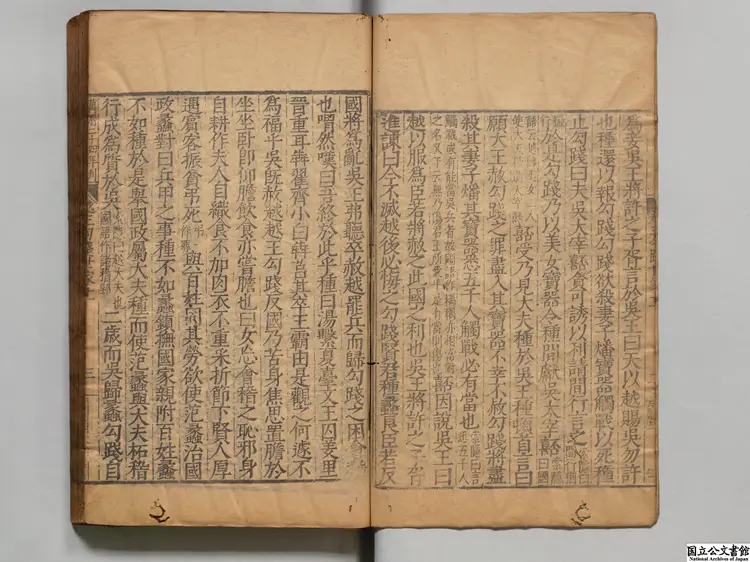 為妾吳王將許之子胥言於吳王曰天以越賜吳勿許
也種還以報勾踐勾踐欲殺妻子燔寶器觸戰以死種
止勾踐曰夫吳太宰嚭貪可誘以利請間行言之
於是勾踐乃以美女寶器令種間獻吳太宰嚭
嚭受乃見大夫種於吳王種頓首言曰
願大王赦勾踐之罪盡入其寶器不幸不赦勾踐將盡
殺其妻子燔其寶器悉五千人觸戰必有當也
嚭因說吳王曰
越以服為臣若將赦之此國之利也吳王將許之子胥
進諫曰今不滅越後必悔之勾踐賢君種蠡良臣若反
國將為亂吳王弗聽卒赦越罷兵而歸勾踐之困會稽
也喟然嘆曰吾終於此乎種曰湯繫夏臺文王囚羑里
晉重耳犇翟齊小白犇莒其卒王霸由是觀之何遽不
為福乎吳既赦越越王勾踐反國乃苦身焦思置膽於
坐坐臥即仰膽飲食亦嘗膽也曰女忘會稽之恥邪身
自耕作夫人自織食不加肉衣不重采折節下賢人厚
遇賓客振貧弔死 與百姓同其勞欲使范蠡治國
政蠡對曰兵甲之事種不如蠡鎮撫國家親附百姓蠡
不如種於是舉國政屬大夫種而使范蠡與大夫柘稽
行成為質於吳 二歲而吳歸蠡勾踐自
国立公文書館
National Archives of Japan